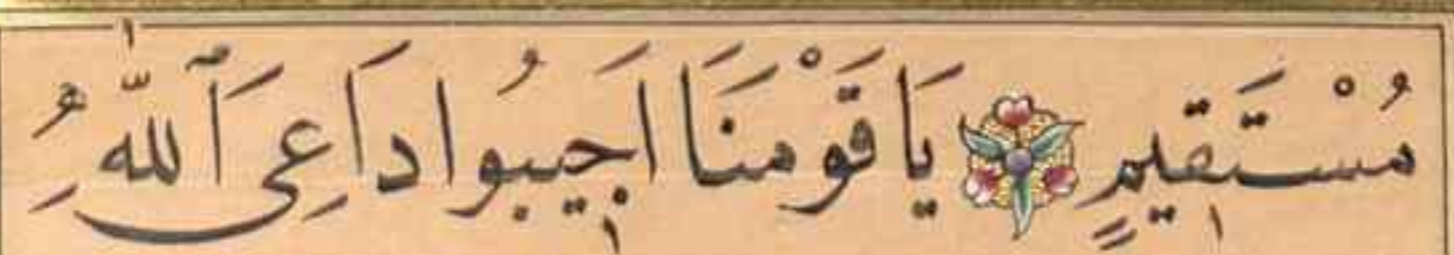 مُسْتَقٖيمٍ يَا قَوْمَنَا اَجٖيبُوا دَاعِىَ ٱللّٰهِ وَ